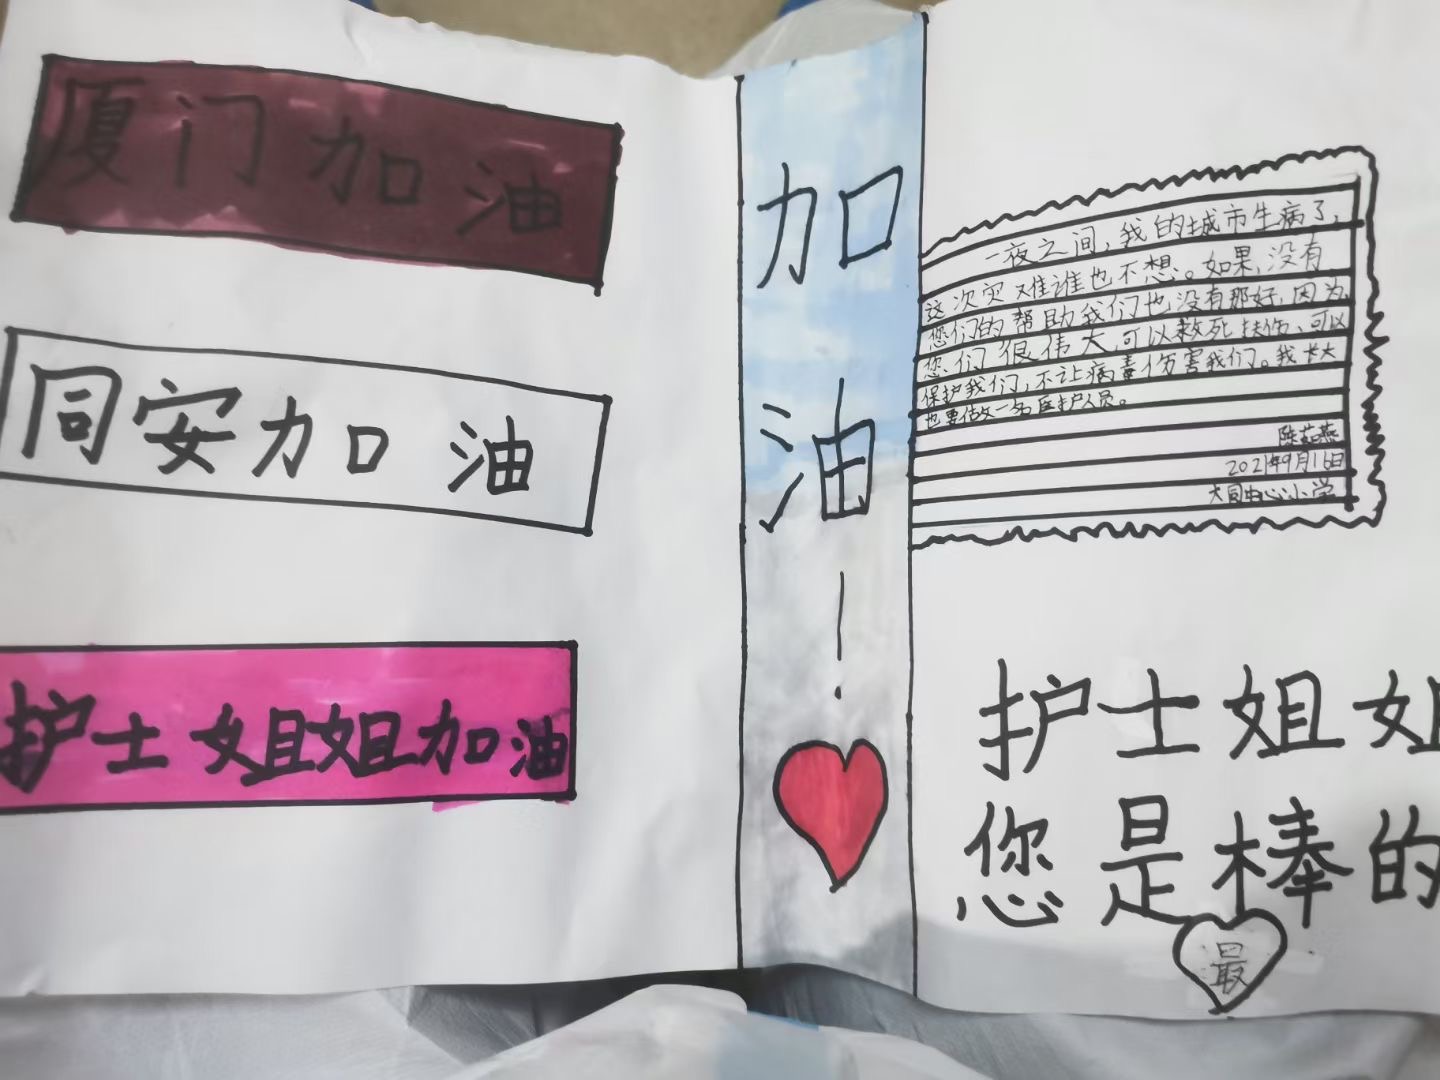 厦门加油
同安加油
护士姐姐加油
加油!
一夜之间，我的城市生病了，
这次灾难谁也不想。如果，没有
您们的帮助我们也没有那好，因为
您们很伟大，可以救死扶伤、可以
保护我们，不让病毒伤害我们。我长大
也要做一名医护人员。
陈茹燕
2021年9月16日
大同中心小学
护士姐姐
您是棒的
最